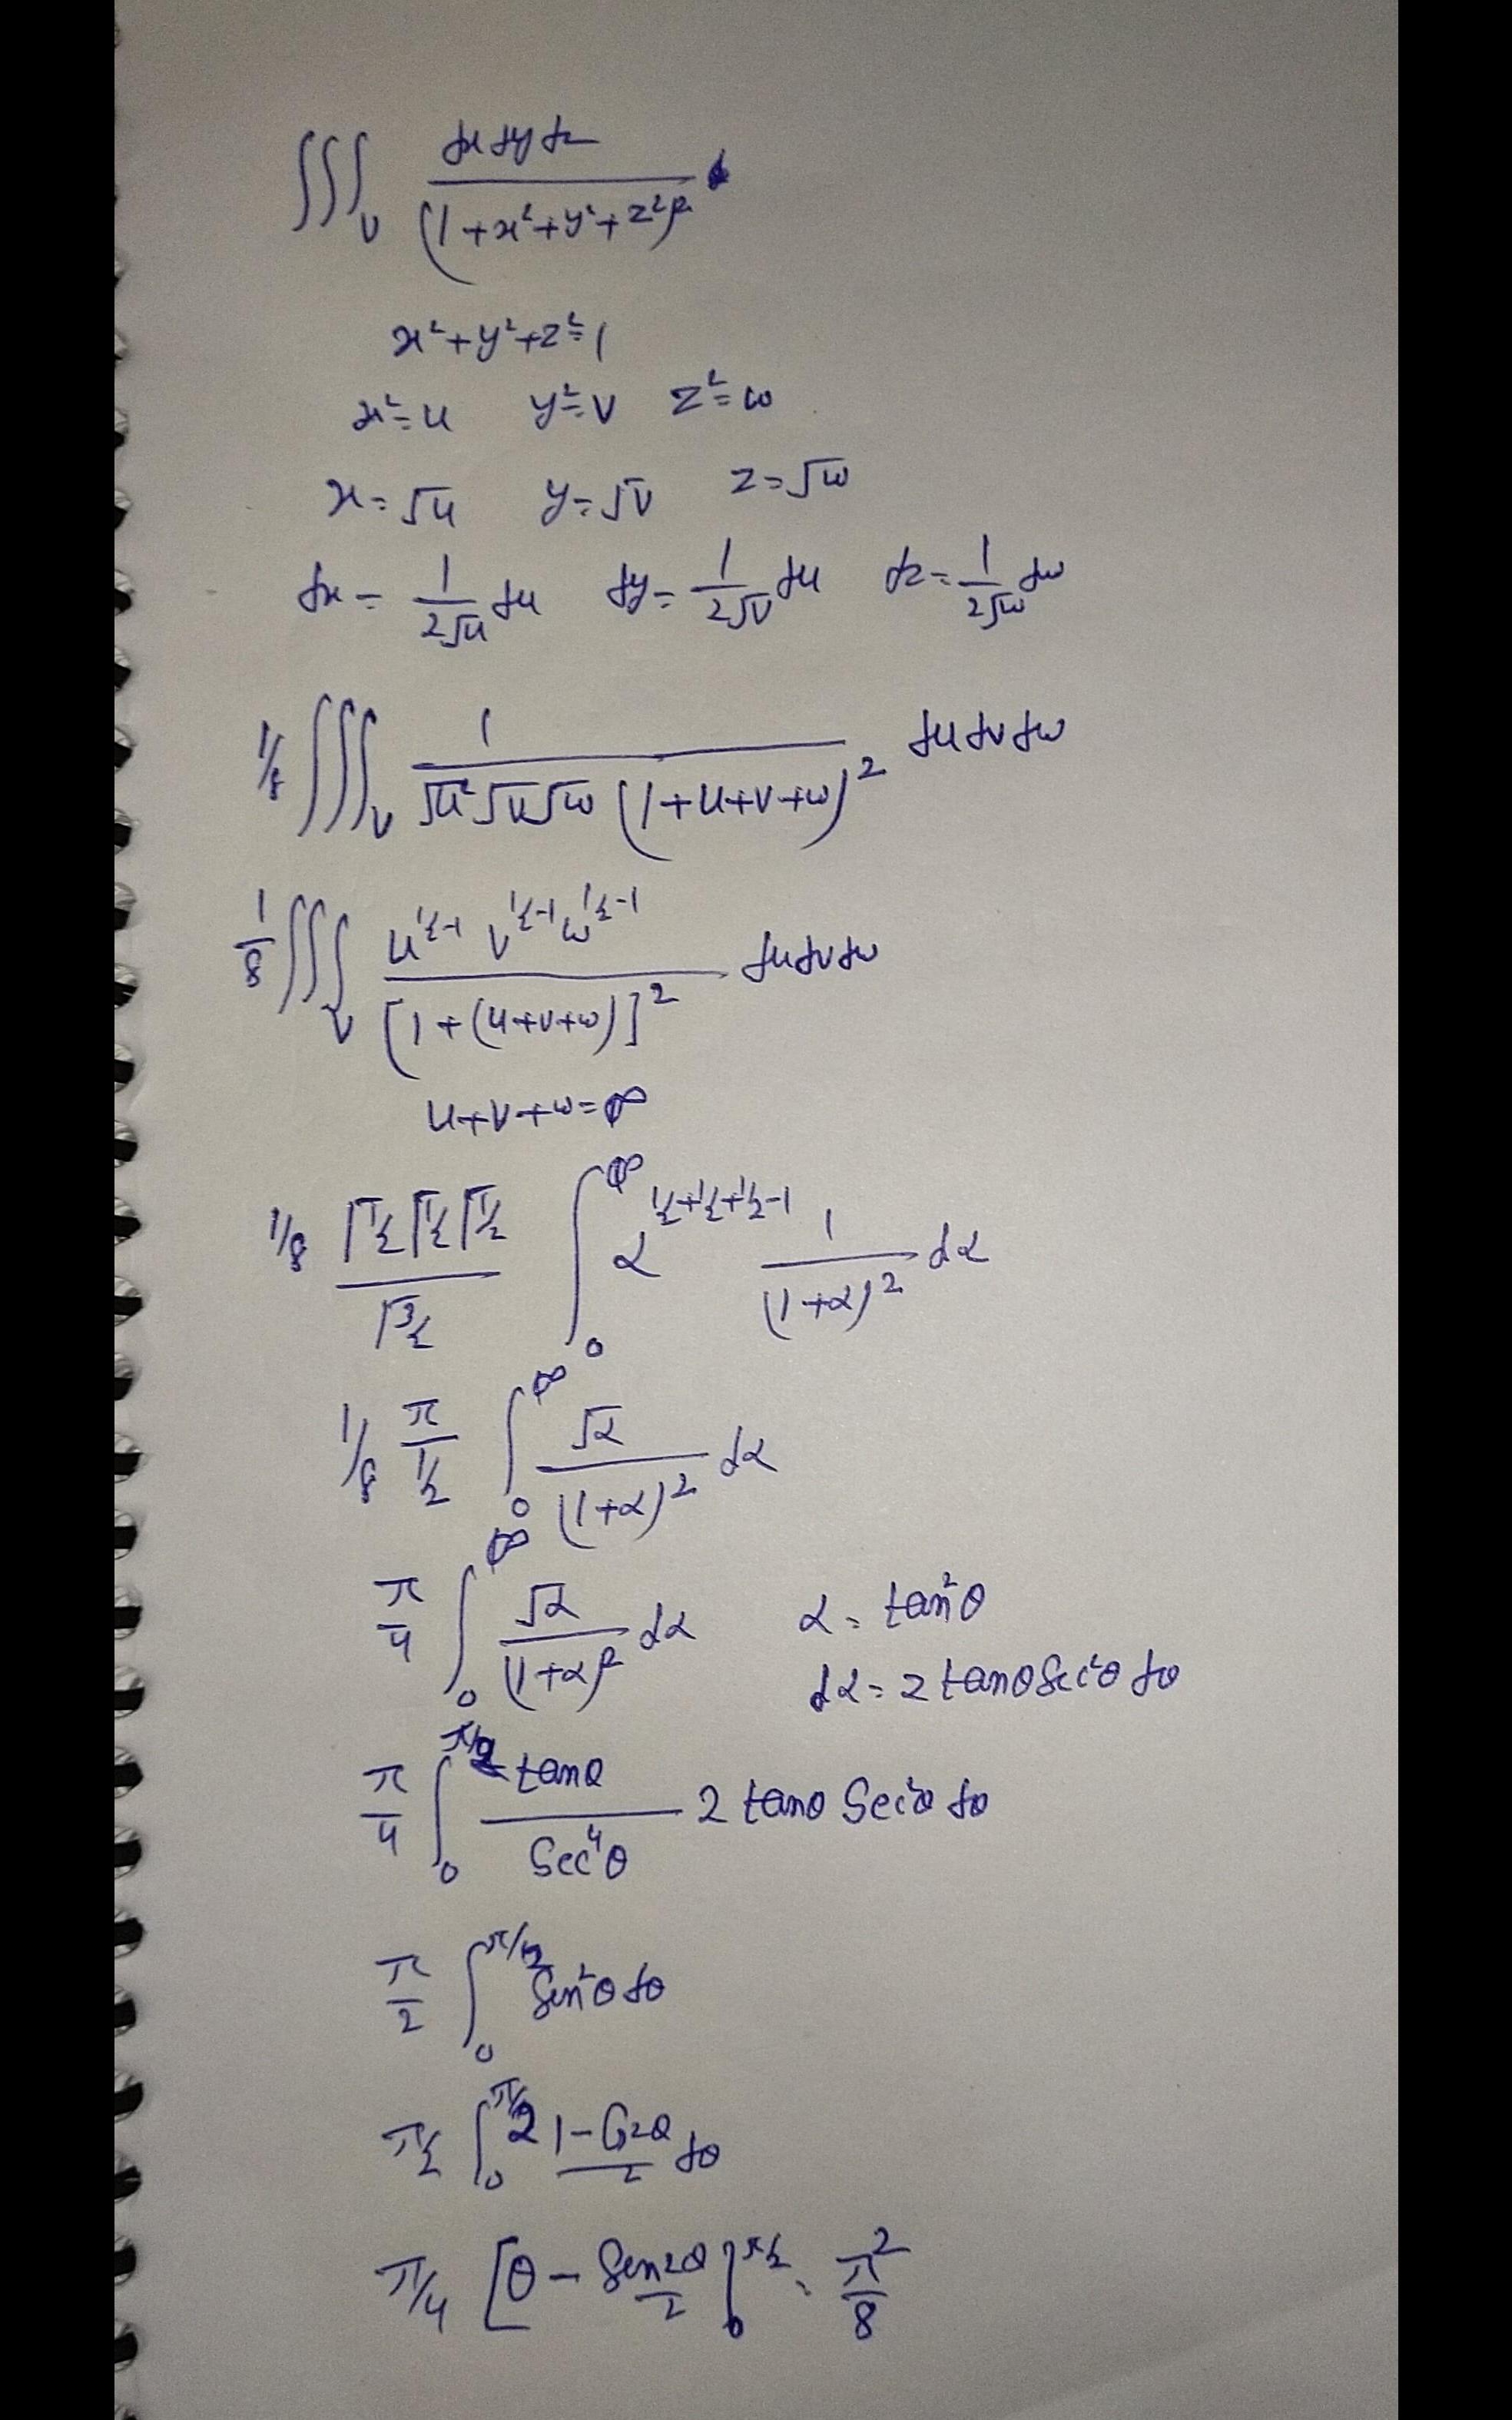 ∭_V dx dy dz / (1+x²+y²+z²)²
x²+y²+z²=1
x²=u y²=v z²=w
x=√u y=√v z=√w
dx = 1/(2√u) du dy = 1/(2√v) du dz = 1/(2√w) dw
1/8 ∭_V 1/(√u √v √w (1+u+v+w)²) du dv dw
1/8 ∭_V u^(1/2-1) v^(1/2-1) w^(1/2-1) / [1+(u+v+w)]² du dv dw
u+v+w=∞
1/8 (Γ1/2 Γ1/2 Γ1/2)/(Γ3/2) ∫_0^∞ α^(1/2+1/2+1/2-1) 1/(1+α)² dα
1/8 π/(1/2) ∫_0^∞ √α/(1+α)² dα
π/4 ∫_0^∞ √α/(1+α)² dα α = tan²θ
dα = 2 tanθ Sec²θ dθ
π/4 ∫_0^(π/2) tanθ/Sec⁴θ 2 tanθ Sec²θ dθ
π/2 ∫_0^(π/2) Sin²θ dθ
π/2 ∫_0^(π/2) (1-Cos2θ)/2 dθ
π/4 [θ - Sin2θ/2]_0^(π/2) = π²/8